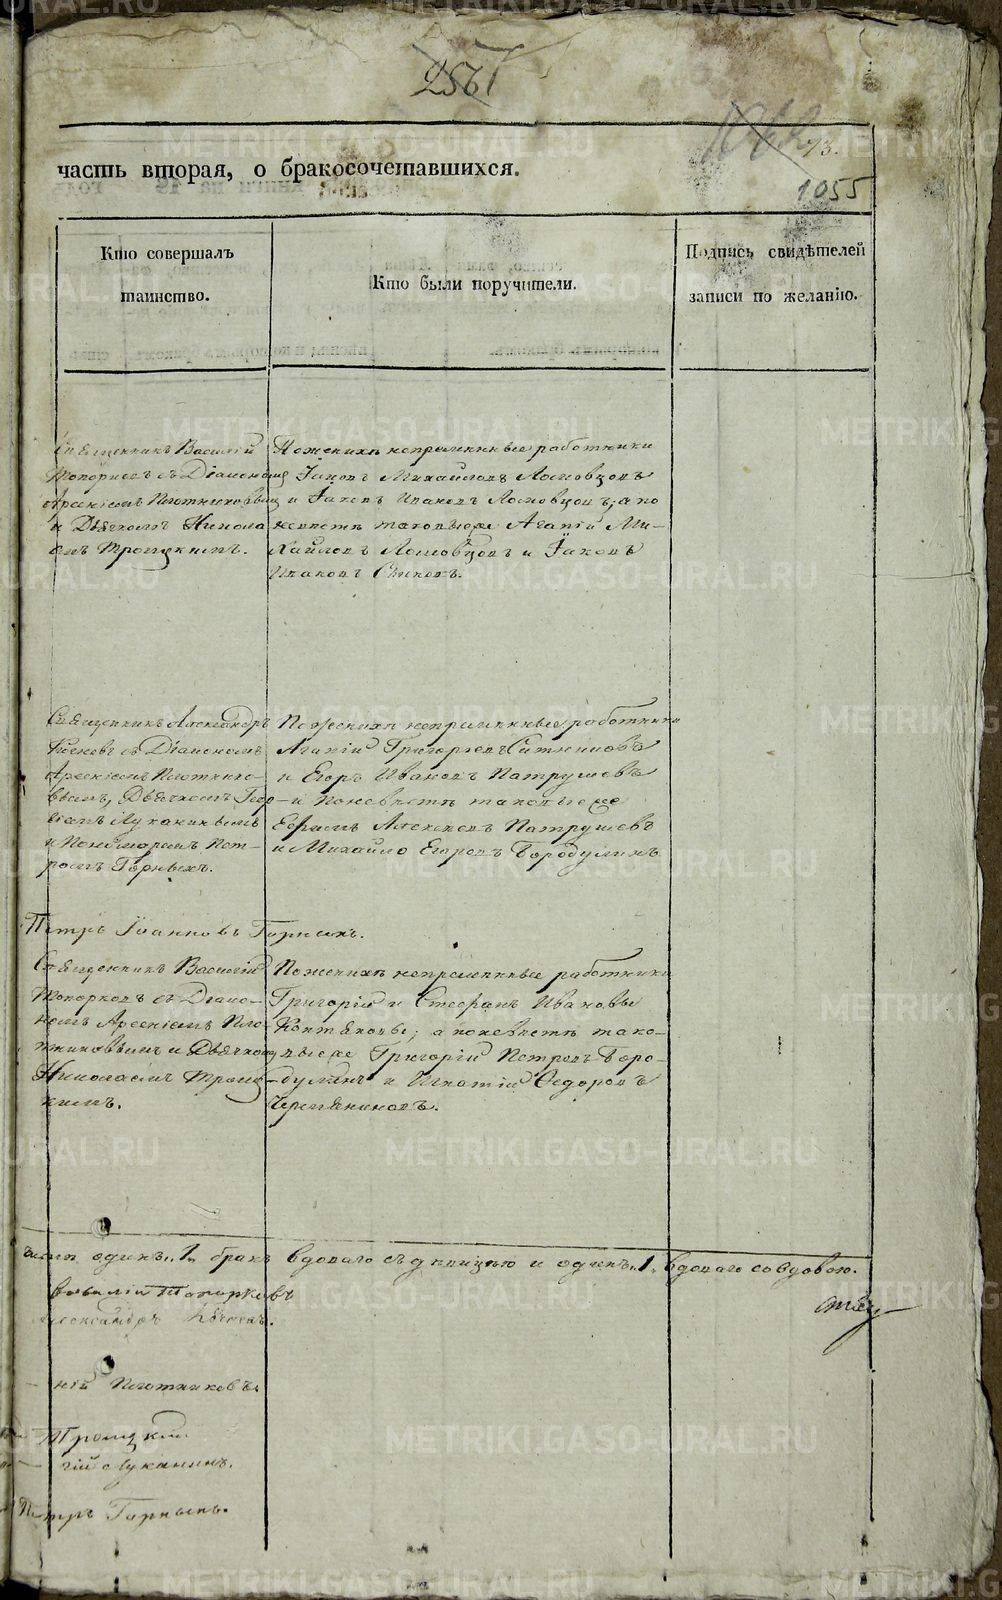 2561
73.
1055
часть вторая, о бракосочетавшихся.
Кто совершалъ
таинство.
Кто были поручители.
Подпись свидѣтелей
записи по желанію.
Священникъ Василій
Топорковъ съ Діакономъ
Арсеніемъ Плотниковымъ
и Дьячкомъ Никола
емъ Троицкимъ.
По женихѣ непремѣнные работники
Михайловъ Ломовцовъ
и Іаковъ Ивановъ Ломовцовъ, а по
невѣстѣ таковыеже Агапій Ми-
хайловъ Ломовцовъ и Іаковъ
Ивановъ
Священникъ Александръ
съ Діакономъ
Арсеніемъ Плотнико-
вымъ, Дьячкомъ Геор-
гіемъ Луканинымъ
и Пономаремъ Пет-
ромъ Горныхъ.
По женихѣ непремѣнные работники
Агапій Григорьевъ Ситниковъ
и Егоръ Ивановъ Патрушевъ
и по невѣстѣ таковыеже
Ефимъ Алексѣевъ Патрушевъ
и Михайло Егоровъ Бородулинъ
Петръ Іоанновъ Горныхъ.
Священникъ Василій
Топорковъ съ Діако-
номъ Арсеніемъ Пло-
тниковымъ и Дьячкомъ
Николаемъ Троиц-
кимъ.
По женихѣ непремѣнные работники
Григорій и Стефанъ Ивановы
а по невѣстѣ тако-
выеже Григорій Петровъ Боро-
дулинъ и Игнатій Федоровъ
одинъ „1„ бракъ вдоваго съ дѣвицею и одинъ „1„ вдоваго со вдовою.
Василій Топорковъ
Александръ
ній Плотниковъ.
Троицкій.
гій Луканинъ.
Петръ Горныхъ.
METRIKI.GASO-URAL.RU